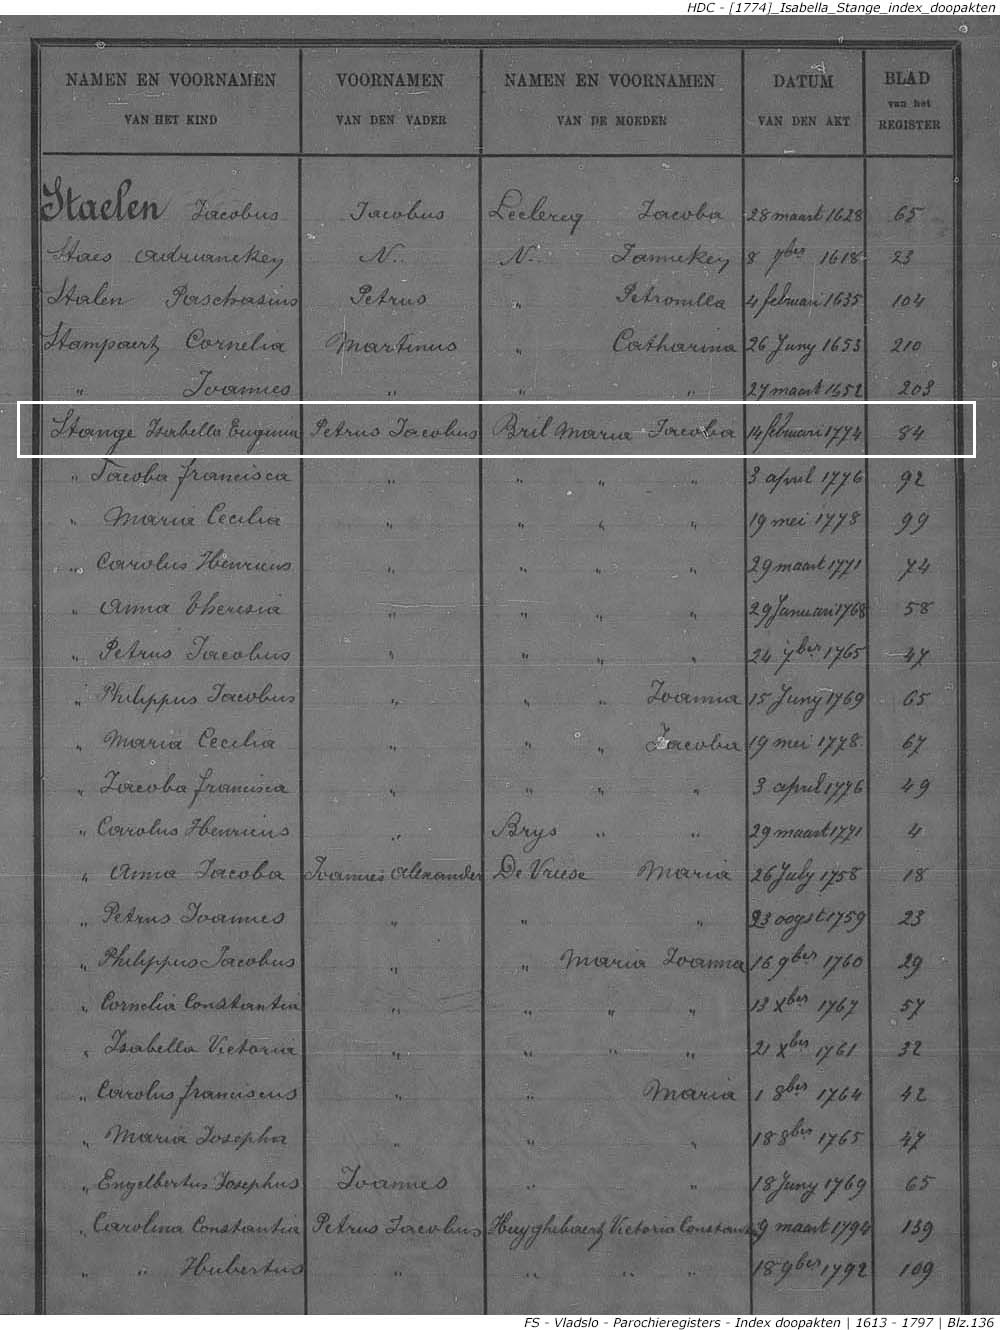 HDC - [1774]_Isabella_Stange_index_doopakten
NAMEN EN VOORNAMEN VOORNAMEN NAMEN EN VOORNAMEN DATUM BLAD
van het
VAN HET KIND VAN DEN VADER VAN DE MOEDER VAN DEN AKT REGISTER
Staelen Jacobus Jacobus Leclercq Jacoba 28 maart 1628 65
Staes Adruanckey N. N. Jannekey 8 7ber 1618 23
Stalen Paschasius Petrus " Petronilla 4 februari 1635 104
Stampaert Cornelia Martinus " Catharina 26 Juny 1653 210
" Joannes " " " 27 maart 1652 203
Stange Isabella Eugenia Petrus Jacobus Bril Maria Jacoba 14 februari 1774 84
" Jacoba francisca " " " " 3 april 1776 92
" Maria Cecilia " " " " 19 mei 1778 99
" Carolus Henricus " " " " 29 maart 1771 74
" Anna Theresia " " " " 29 Januari 1768 58
" Petrus Jacobus " " " " 24 7ber 1765 47
" Philippus Jacobus " " " Joanna 15 Juny 1769 65
" Maria Cecilia " " " Jacoba 19 mei 1778 67
" Jacoba francisca " " " " 3 april 1776 49
" Carolus Henricus " Brys " " 29 maart 1771 4
" Anna Jacoba Joannes Alexander De Vriese Maria 26 July 1758 18
" Petrus Joannes " " " 23 oogst 1759 23
" Philippus Jacobus " " Maria Joanna 16 9ber 1760 29
" Cornelia Constantia " " " " 13 Xber 1767 57
" Isabella Victoria " " " " 21 Xber 1761 32
" Carolus franciscus " " Maria 1 8ber 1764 42
" Maria Josepha " " " 18 8ber 1765 47
" Engelbertus Josephus Joannes " " 18 Juny 1769 65
" Carolina Constantia Petrus Jacobus Huyghebaert Victoria 9 maart 1794 139
" " Hubertus " " " " 18 9ber 1792 109
FS - Vladslo - Parochieregisters - Index doopakten | 1613 - 1797 | Blz.136